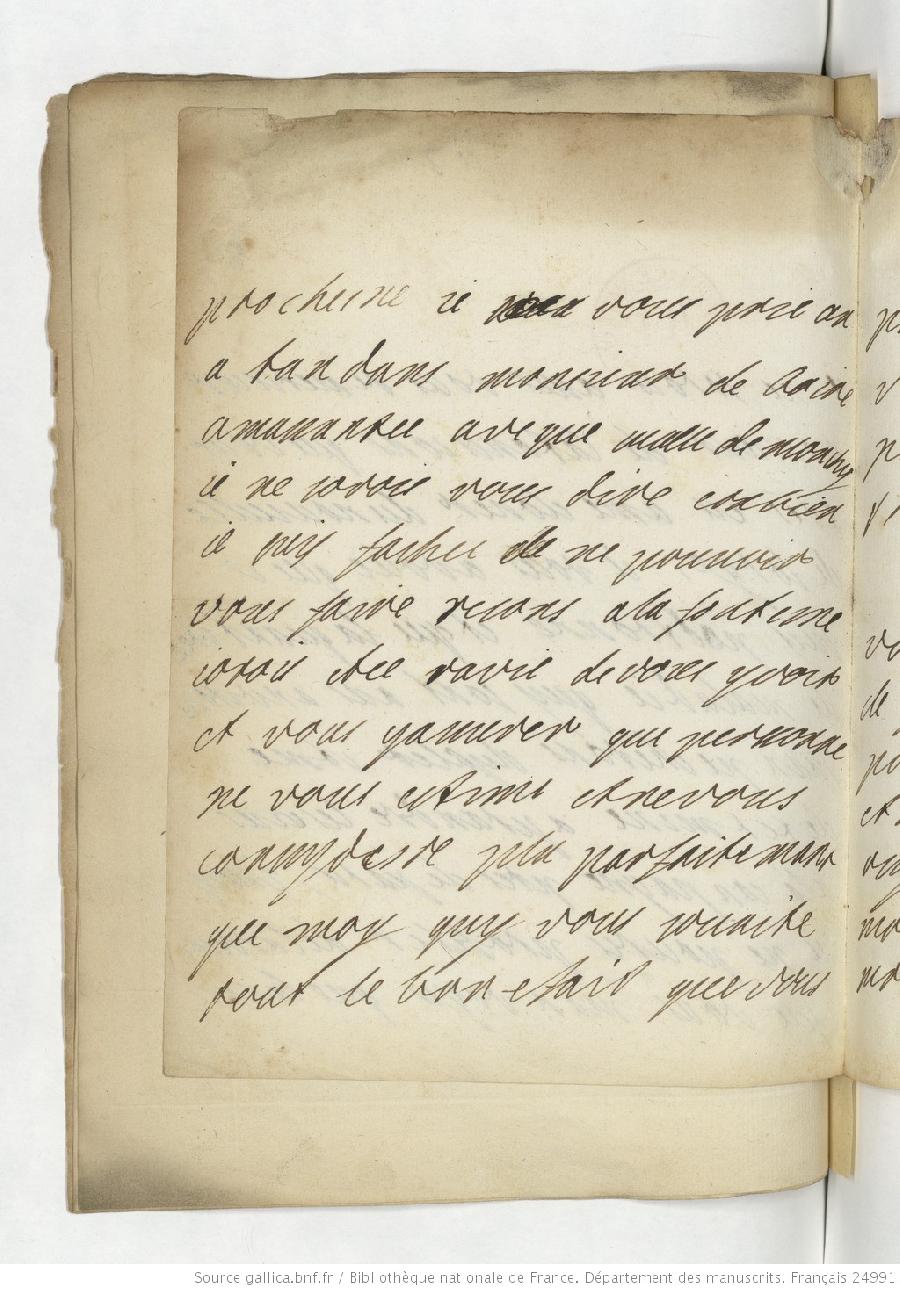 prochesne ie vous prie an
a tandans monsieur de
aveque malle de
ie ne sorois vous dire conbien
ie suis fachee de ne pouuoir
vous faire resons a la
iorois etee ravie de vous y voir
et vous y asurer que personne
ne vous estime et ne vous
consydere plu parfaitemant
que moy quy vous souaite
tout le bon efait que vous
Source gallica.bnf.fr / Bibliothèque nationale de France. Département des manuscrits. Français 24991